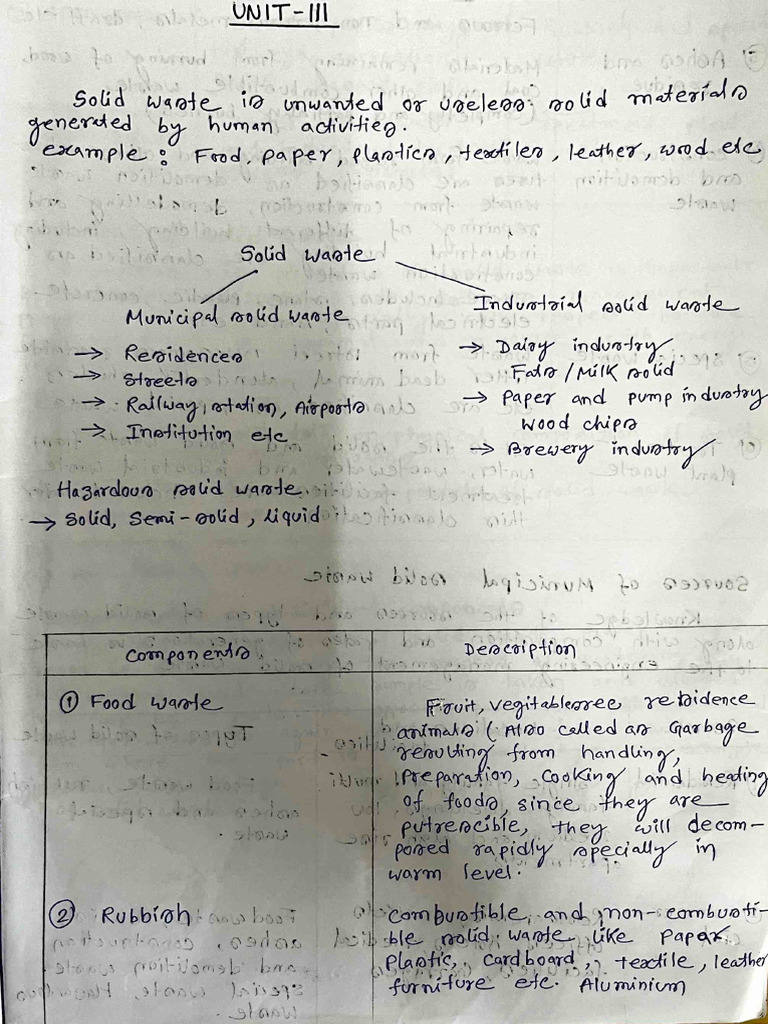 UNIT-III
Solid waste is unwanted or useless solid materials
generated by human activities.
example : Food, paper, Plastics, textiles, leather, wood etc
Solid waste
Municipal solid waste
→ Residences
→ Streets
→ Railway, station, Airports
→ Institution etc
Industrial solid waste
→ Dairy industry
Fats / Milk solid
→ Paper and pump industry
wood chips
→ Brewery industry
Hazardous solid waste
→ Solid, Semi-solid, Liquid
Components
Description
① Food waste
Fruit, vegitables residence
animals (Also called as Garbage
resulting from handling,
Preparation, cooking and heating
of foods, since they are
putrescible, they will decom-
posed rapidly specially in
warm level.
② Rubbish
Combustible, and non-combusti-
ble solid waste like Paper
Plastic, cardboard, textile, leather
furniture etc. Aluminium